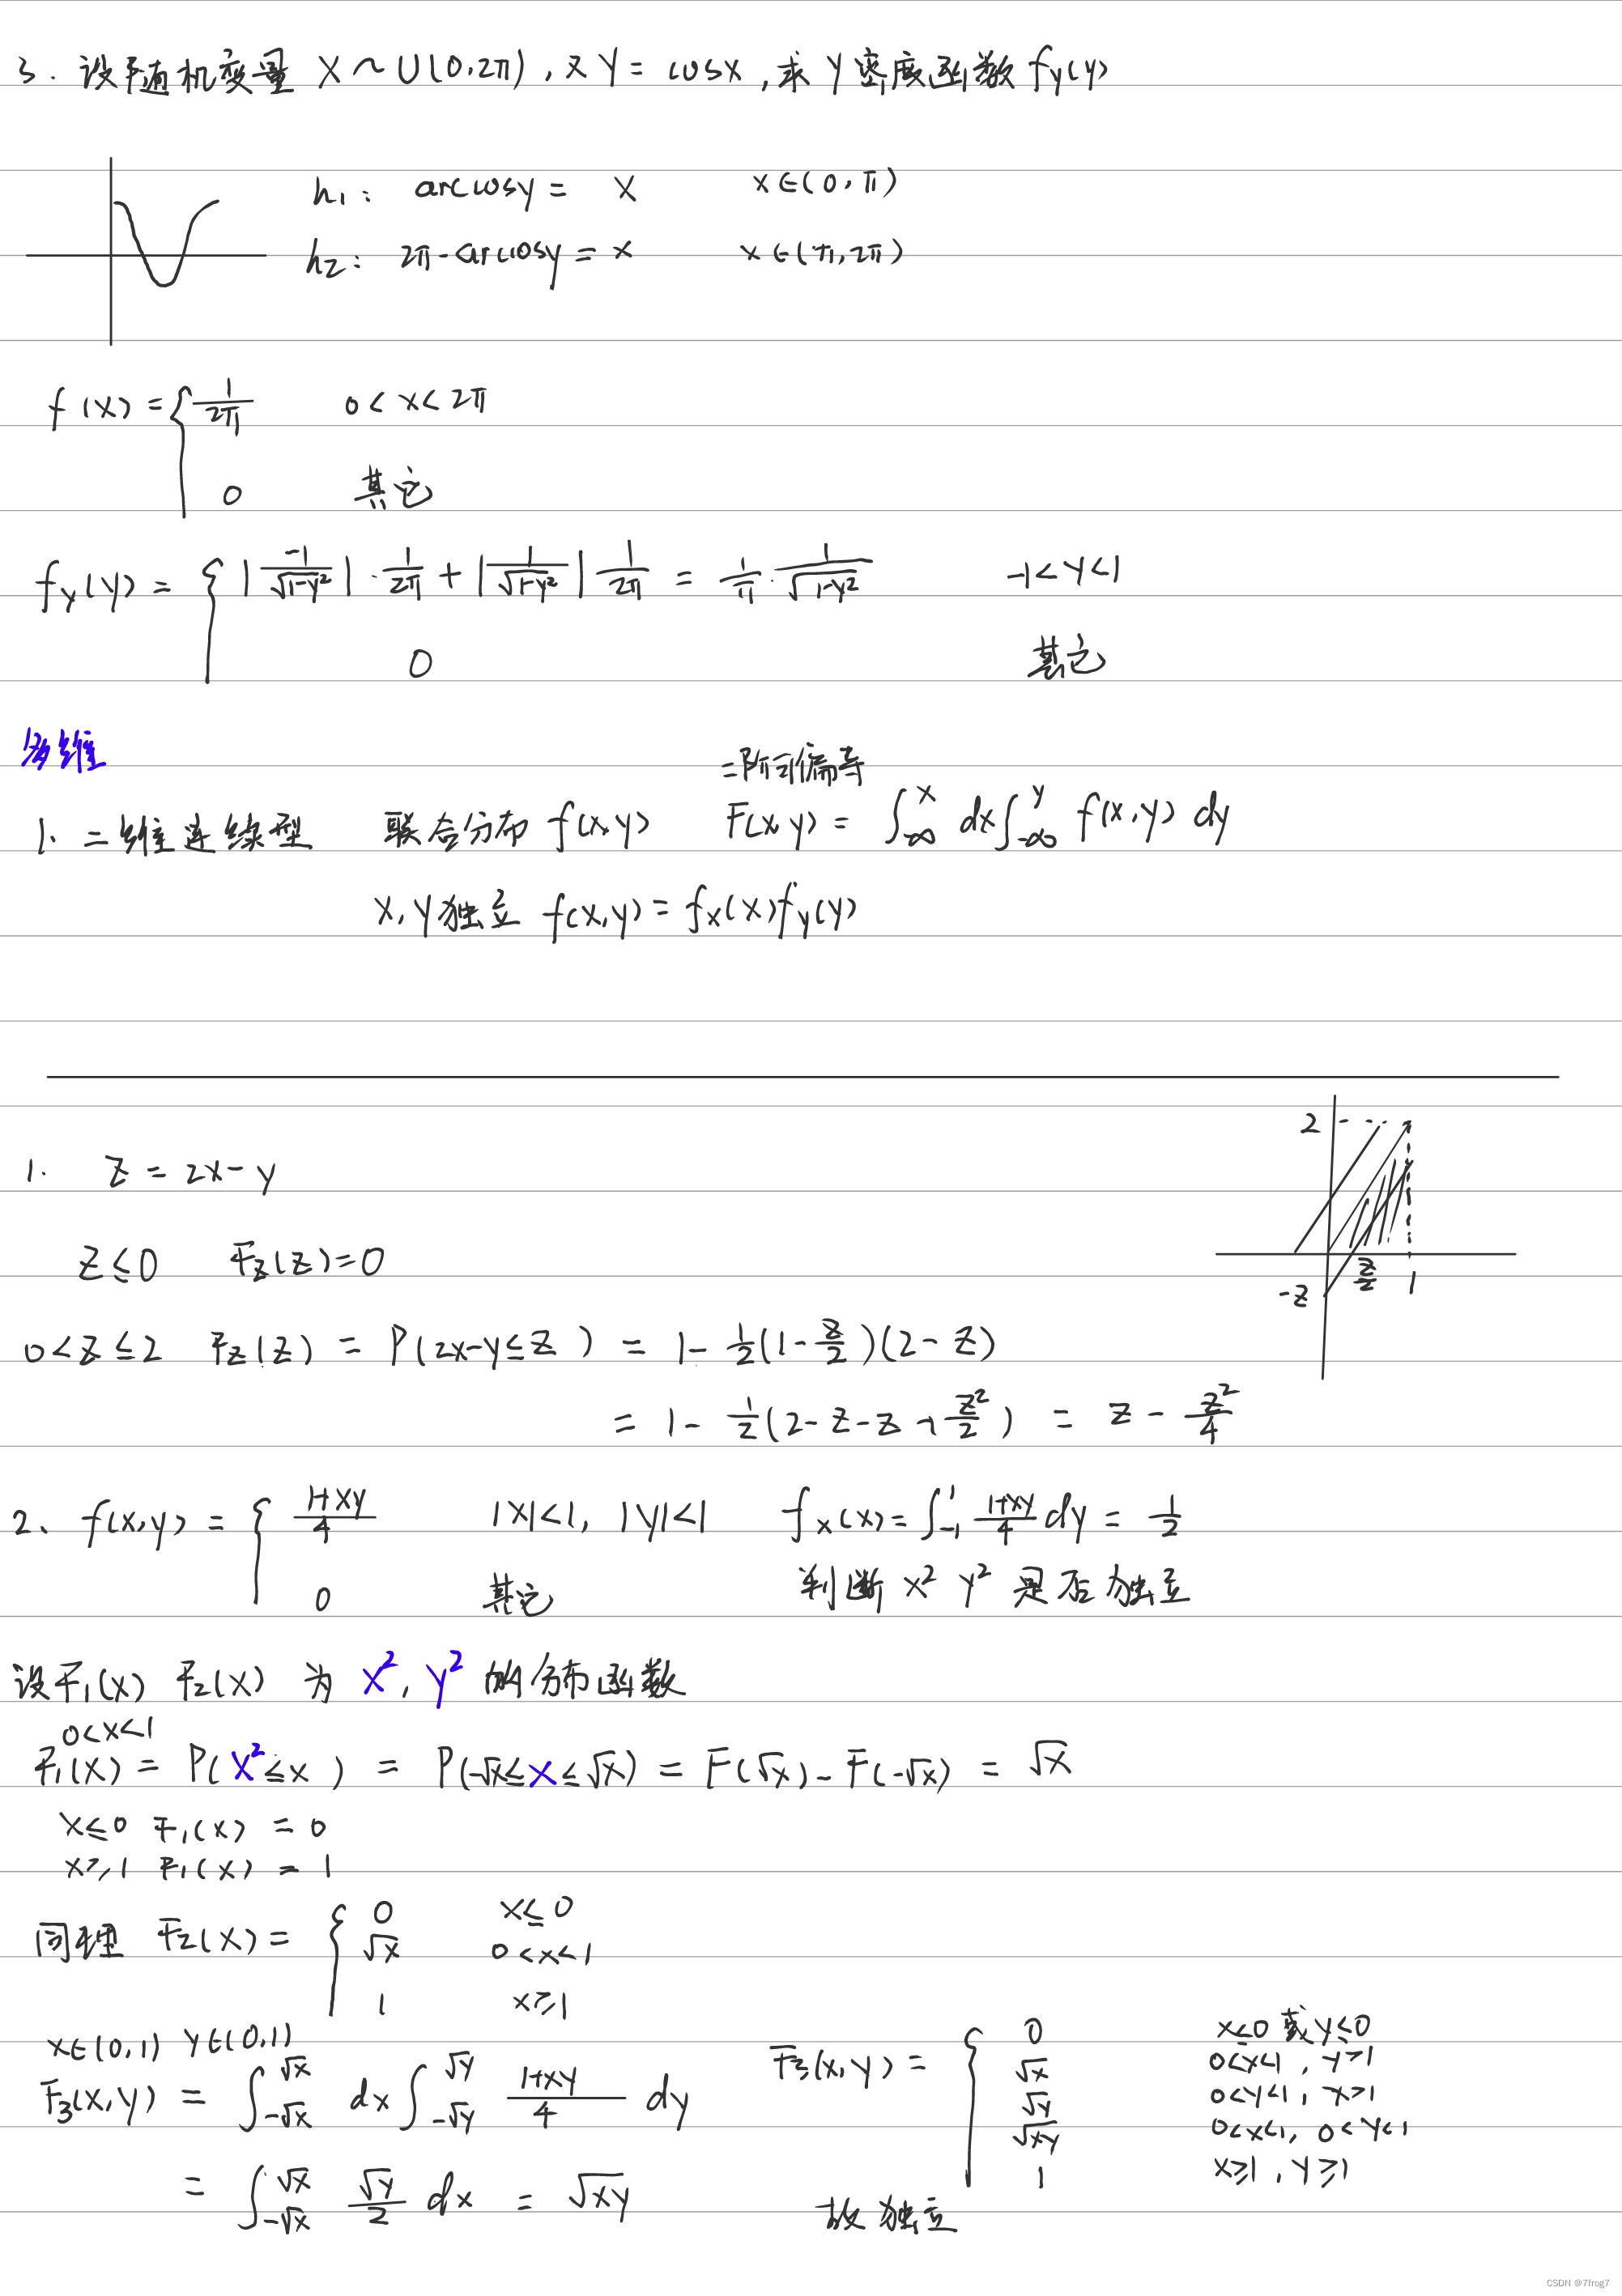 3. 设随机变量 X ~ U(0,2π), 又 Y = cosx, 求 Y 密度函数 fy(y)
h₁: arccosy = x x∈(0,π)
h₂: 2π-arccosy = x x∈(π,2π)
f(x) = { 1/2π 0<x<2π
0 其它
fY(y) = { |-1/√(1-y²)|·1/2π + |1/√(1-y²)| 1/2π = 1/π · 1/√(1-y²) -1<y<1
0 其它
多维
二阶可偏导
1. 二维连续型 联合分布 f(x,y) F(x,y) = ∫_{-∞}^{x} dx ∫_{-∞}^{y} f(x,y) dy
X,Y独立 f(x,y) = fx(x)fy(y)
2
1. Z = 2x-y
Z≤0 Fz(z)=0
-z z/2 1
0<z≤2 Fz(z) = P(2x-y≤z) = 1 - 1/2(1-z/2)(2-z)
= 1 - 1/2(2-z-z+z²/2) = z - z²/4
2、f(x,y) = { (1+xy)/4 |x|<1, |y|<1 fx(x) = ∫_{-1}^{1} (1+xy)/4 dy = 1/2
0 其它 判断 x² Y² 是否独立
设F₁(x) F₂(x) 为 X², Y² 的分布函数
0<x<1
F₁(x) = P(X²≤x) = P(-√x≤X≤√x) = F(√x) - F(-√x) = √x
x≤0 F₁(x) = 0
x≥1 F₁(x) = 1
同理 F₂(x) = { 0 x≤0
√x 0<x<1
1 x≥1
x∈(0,1) y∈(0,1)
F₃(x,y) = ∫_{-√x}^{√x} dx ∫_{-√y}^{√y} (1+xy)/4 dy
= ∫_{-√x}^{√x} √y/2 dx = √xy
F₃(x,y) = { 0 x≤0 或 y≤0
√x 0<x<1, y≥1
√y 0<y<1, x≥1
√xy 0<x<1, 0<y<1
1 x≥1, y≥1
故独立
CSDN @7frog7